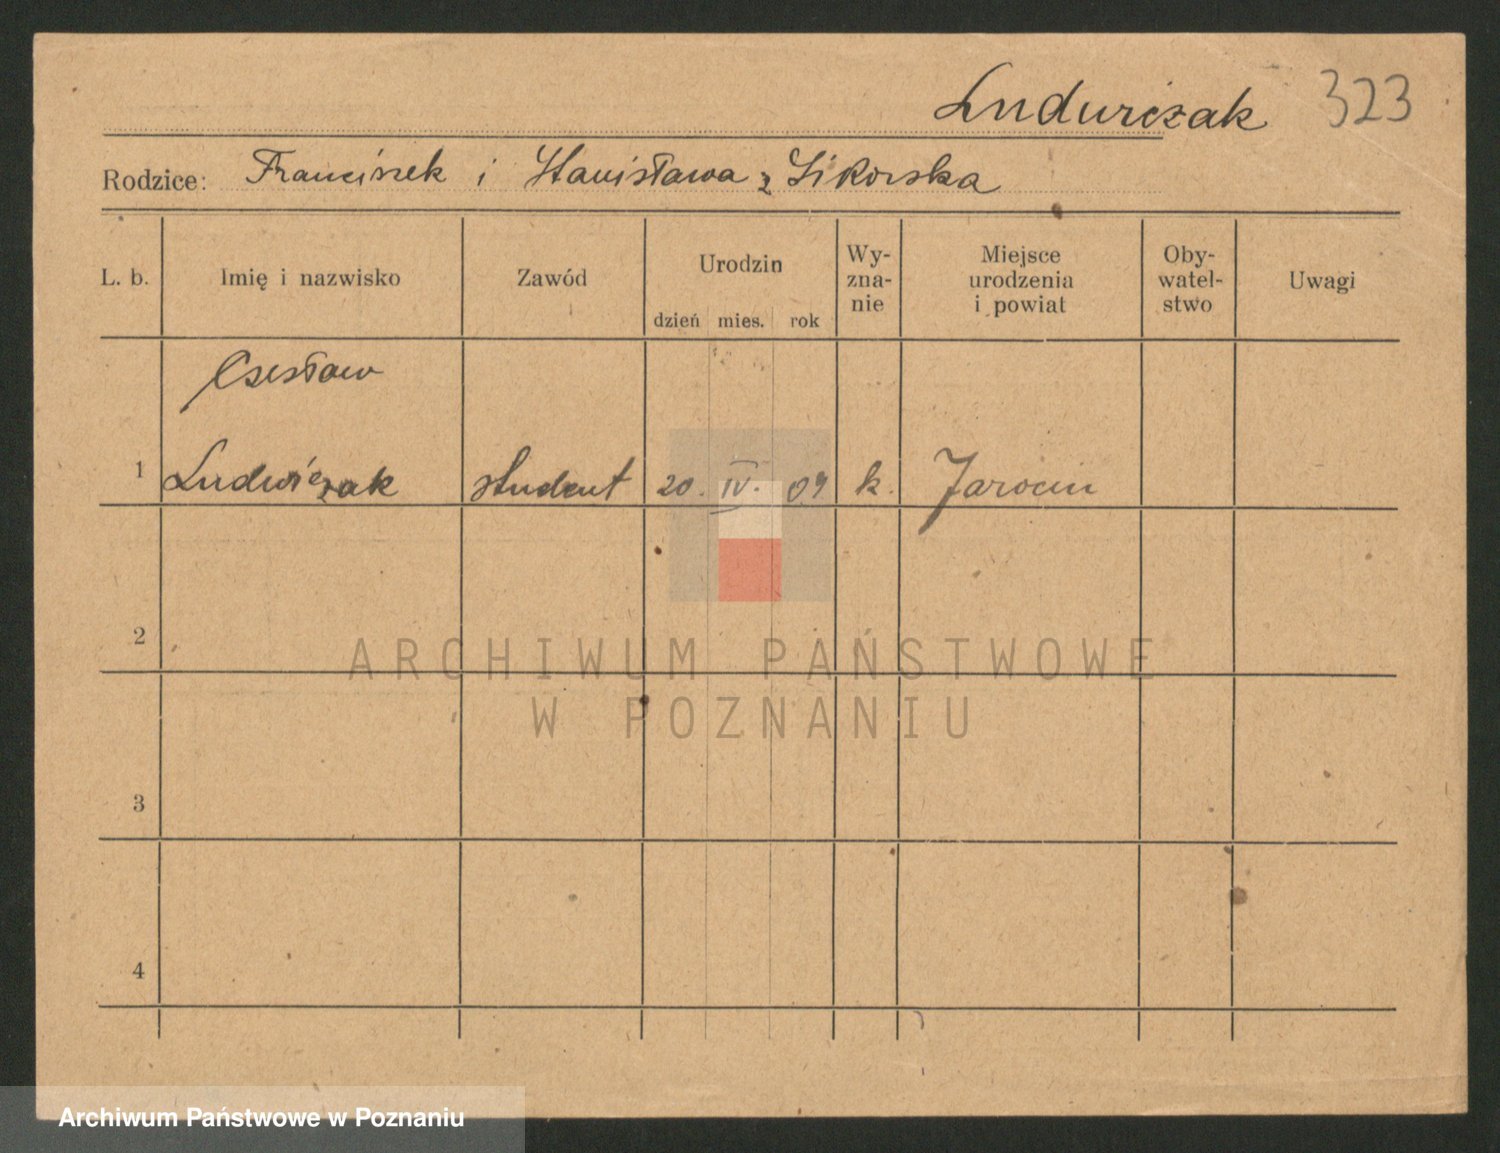 Ludwiczak 323
Rodzice: Franciszek i Stanisława z Sikorska
L. b. Imię i nazwisko Zawód Urodzin dzień mies. rok Wy-zna-nie Miejsce urodzenia i powiat Oby-watel-stwo Uwagi
Czesław
1 Ludwiczak student 20. IV. 09 k. Jarocin
2
ARCHIWUM PAŃSTWOWE
W POZNANIU
3
4
Archiwum Państwowe w Poznaniu